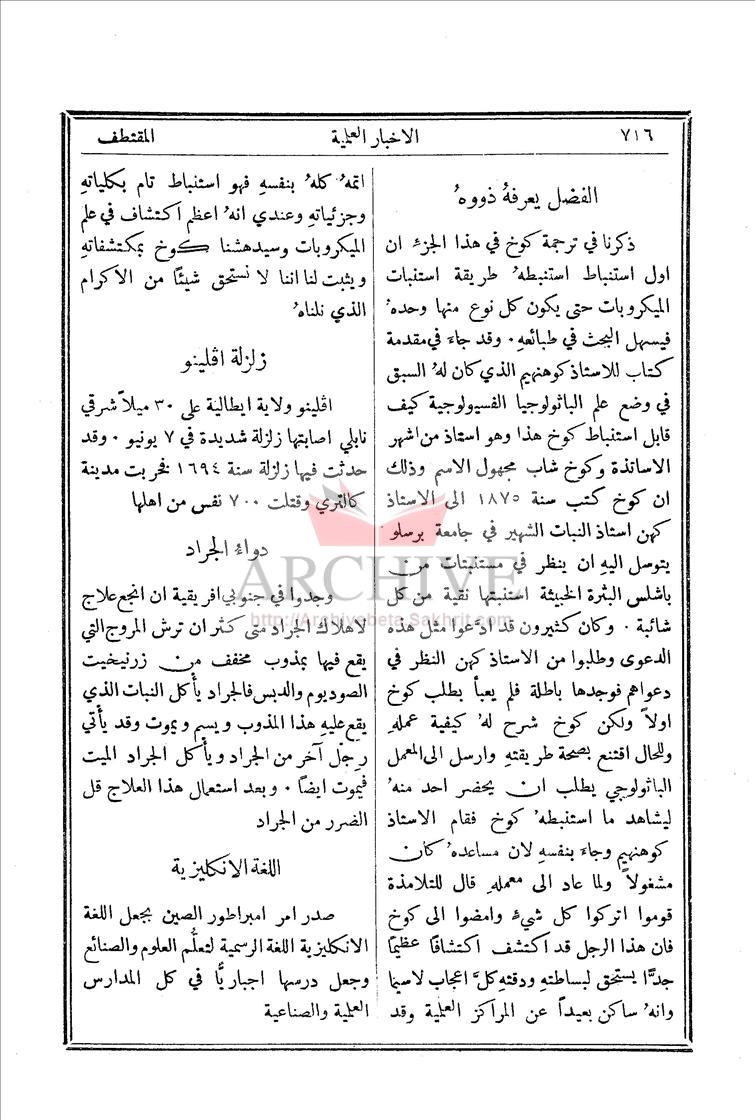 ٧١٦ الاخبار العلمية المقتطف
الفضل يعرفهُ ذووهُ
ذكرنا في ترجمة كوخ في هذا الجزء ان
اول استنباط استنبطهُ طريقة استنبات
الميكروبات حتى يكون كل نوع منها وحدهُ
فيسهل البحث في طبائعهِ ٠ وقد جاءَ في مقدمة
كتاب للاستاذ كوهنهيم الذي كان لهُ السبق
في وضع علم الباثولوجيا الفسيولوجية كيف
قابل استنباط كوخ هذا وهو استاذ من اشهر
الاساتذة وكوخ شاب مجهول الاسم وذلك
ان كوخ كتب سنة ١٨٧٥ الى الاستاذ
كهن استاذ النبات الشهير في جامعة برسلو
يتوسل اليهِ ان ينظر في مستنبتات من
باشلس البثرة الخبيثة استنبتها نقية من كل
شائبة ٠ وكان كثيرون قد ادَّعوا مثل هذه
الدعوى وطلبوا من الاستاذ كهن النظر في
دعواهم فوجدها باطلة فلم يعبأ بطلب كوخ
اولاً ولكن كوخ شرح لهُ كيفية عملهِ
وللحال اقتنع بصحة طريقتهِ وارسل الى المعمل
الباثولوجي يطلب ان يحضر احد منهُ
ليشاهد ما استنبطهُ كوخ فقام الاستاذ
كوهنهيم وجاءَ بنفسهِ لان مساعدهُ كان
مشغولاً ولما عاد الى معملهِ قال للتلامذة
قوموا اتركوا كل شيءٍ وامضوا الى كوخ
فان هذا الرجل قد اكتشف اكتشافًا عظيمًا
جدًّا يستحق لبساطتهِ ودقتهِ كلَّ اعجاب لاسيما
وانهُ ساكن بعيداً عن المراكز العلمية وقد
اتمهُ كلهُ بنفسهِ فهو استنباط تام بكلياتهِ
وجزئياتهِ وعندي انهُ اعظم اكتشاف في علم
الميكروبات وسيدهشنا كوخ بمكتشفاتهِ
ويثبت لنا اننا لا نستحق شيئًا من الاكرام
الذي نلناهُ
زلزلة اڤلينو
اڤلينو ولاية ايطالية على ٣٠ ميلاً شرقي
نابلي اصابتها زلزلة شديدة في ٧ يونيو ٠ وقد
حدثت فيها زلزلة سنة ١٦٩٤ فخربت مدينة
كالتري وقتلت ٧٠٠ نفس من اهلها
دواءُ الجراد
وجدوا في جنوبي افريقية ان انجع علاج
لاهلاك الجراد متى كثر ان ترش المروج التي
يقع فيها بمذوب مخفف من زرنيخيت
الصوديوم والدبس فالجراد يأكل النبات الذي
يقع عليهِ هذا المذوب ويسم ويموت وقد يأتي
رِجْل آخر من الجراد ويأكل الجراد الميت
فيموت ايضاً ٠ وبعد استعمال هذا العلاج قل
الضرر من الجراد
اللغة الانكليزية
صدر امر امبراطور الصين بجعل اللغة
الانكليزية اللغة الرسمية لتعلُّم العلوم والصنائع
وجعل درسها اجباريًّا في كل المدارس
العلمية والصناعية
ARCHIVE
http://Archivebeta.Sakhrit.com